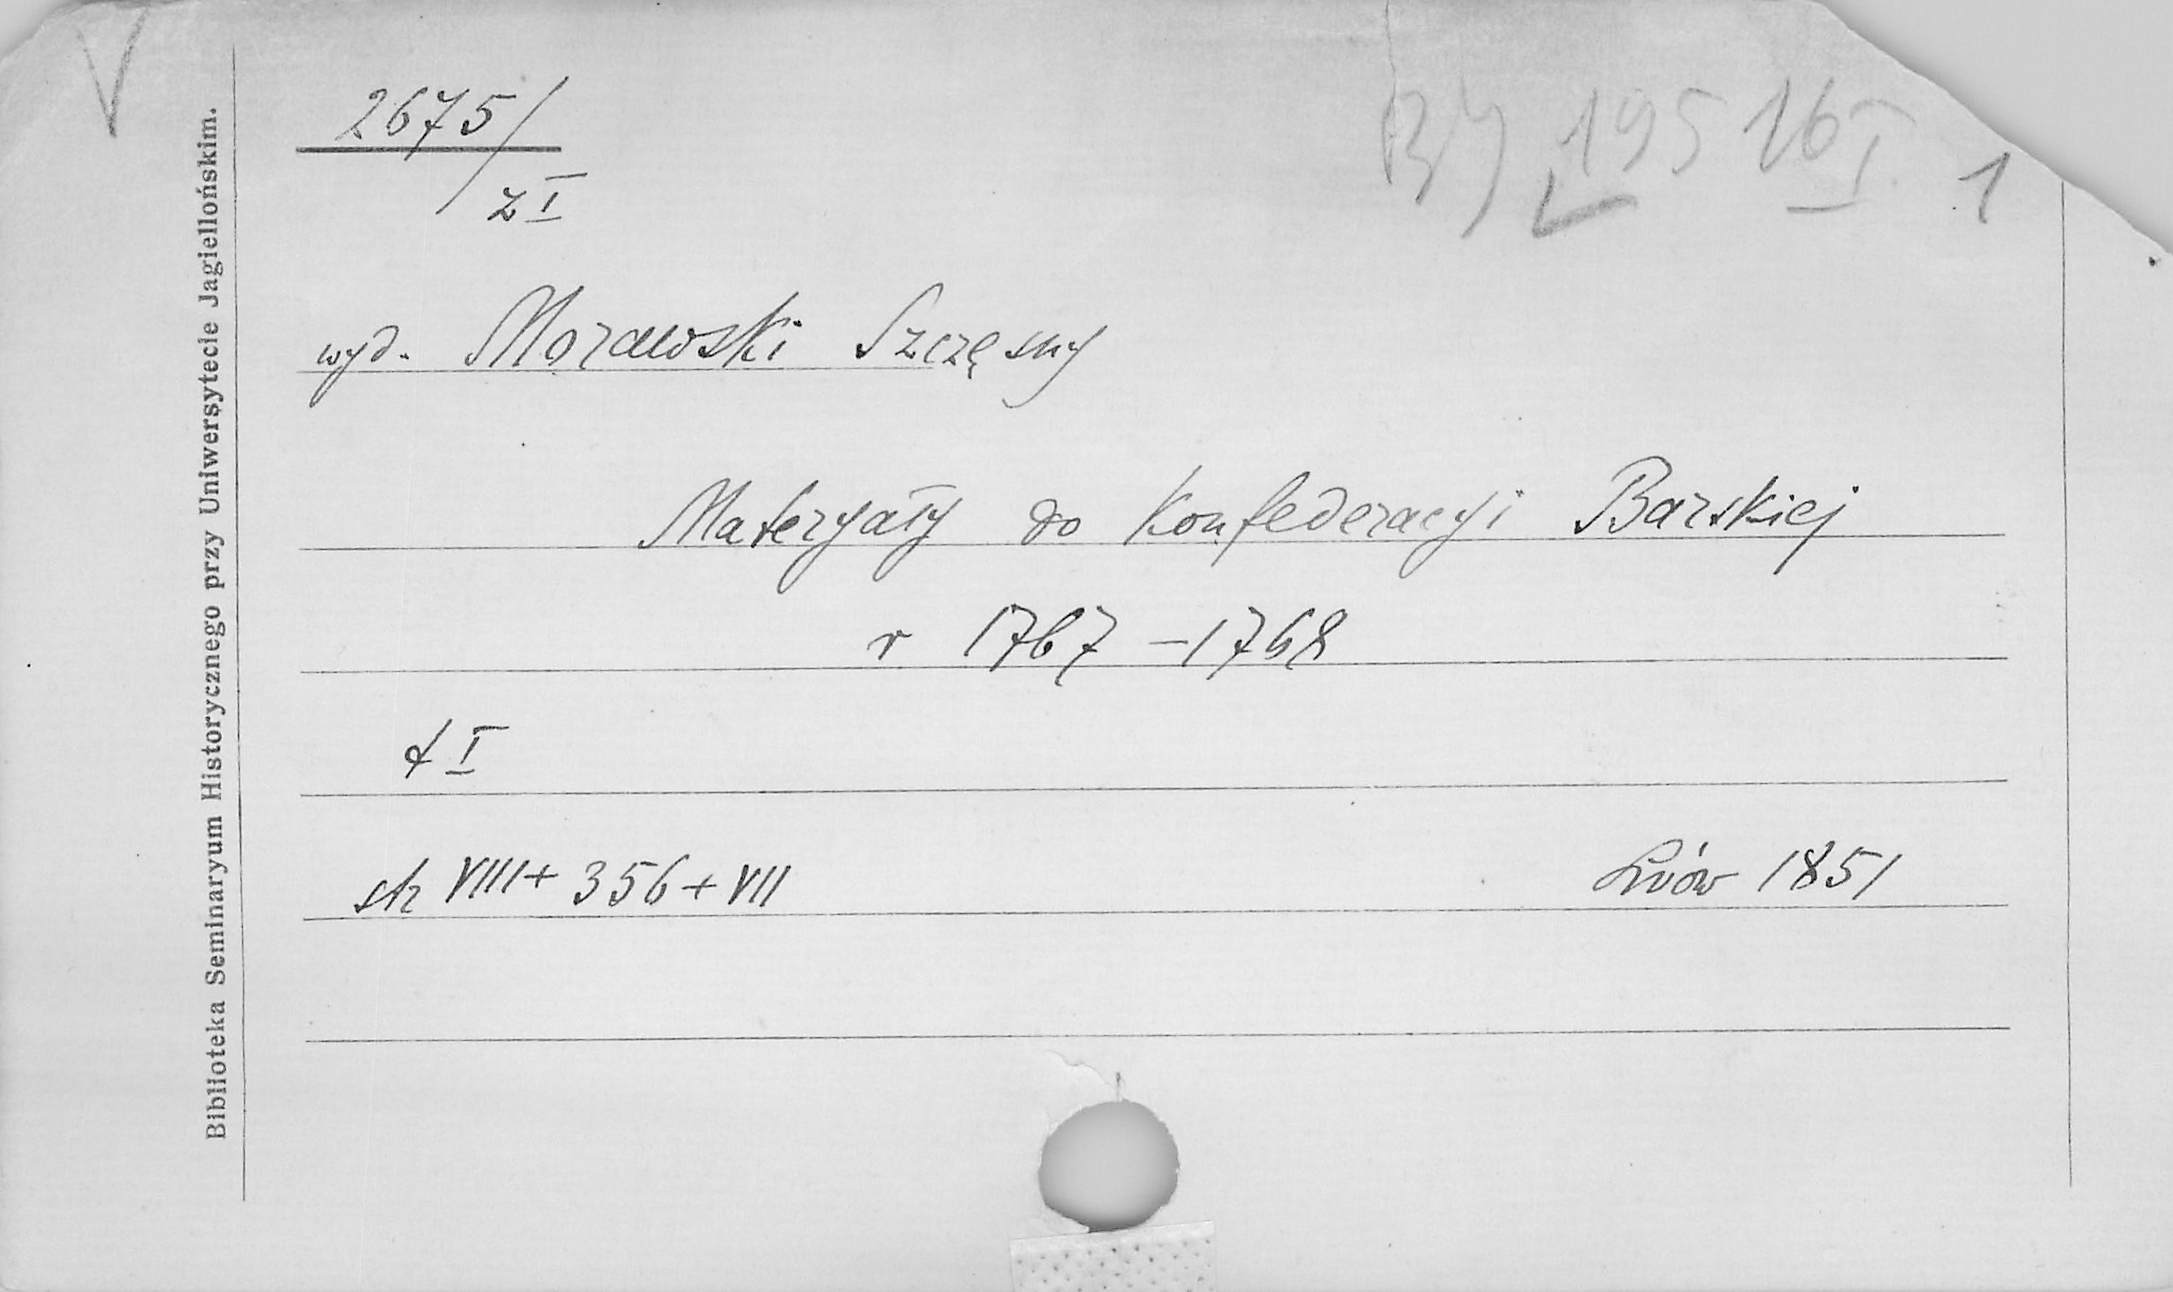 V
2675/
z I
BJ 195 16 I 1
wyd. Morawski Szczęsny
Materyały do Konfederacyi Barskiej
r 1767-1768
t I
str VIII + 356 + VII
Lwów 1851
Biblioteka Seminaryum Historycznego przy Uniwersytecie Jagiellońskim.